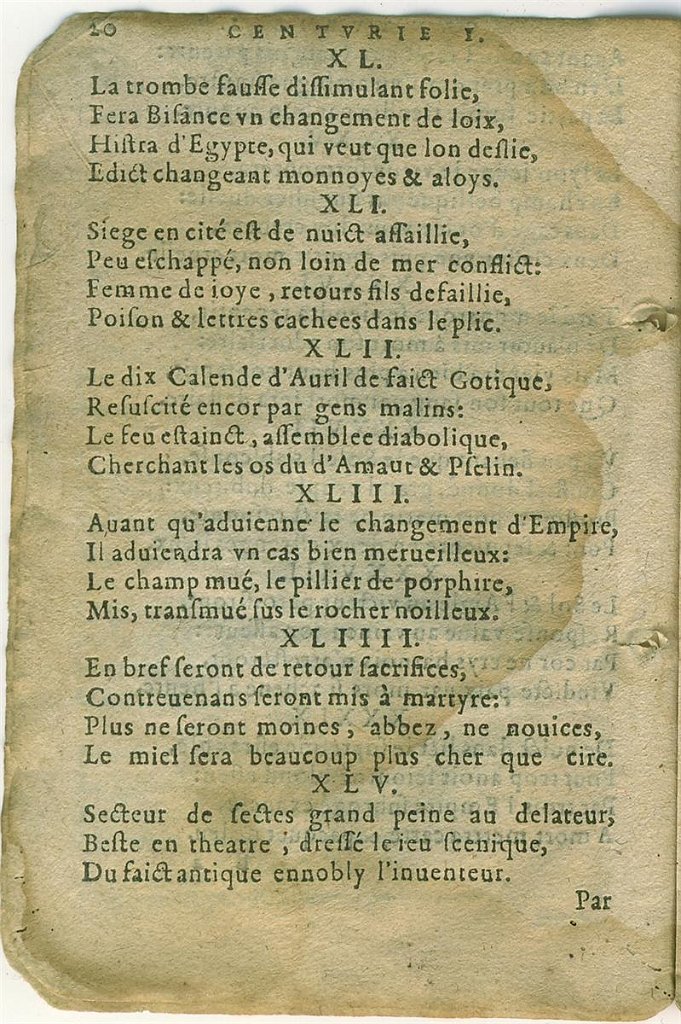 20 CENTVRIE I.
XL.
La trombe fauſſe diſſimulant folie,
Fera Biſance vn changement de loix,
Hiſtra d'Egypte, qui veut que lon deſlie,
Edict changeant monnoyes & aloys.
XLI.
Siege en cité eſt de nuict aſſaillie,
Peu eſchappé, non loin de mer conflict:
Femme de ioye, retours fils defaillie,
Poiſon & lettres cachees dans le plic.
XLII.
Le dix Calende d'Auril de faict Gotique,
Reſuſcité encor par gens malins:
Le feu eſtainct, aſſemblee diabolique,
Cherchant les os du d'Amaut & Pſelin.
XLIII.
Auant qu'aduienne le changement d'Empire,
Il aduiendra vn cas bien merueilleux:
Le champ mué, le pillier de porphire,
Mis, tranſmué ſus le rocher noilleux.
XLIIII.
En bref ſeront de retour ſacrifices,
Contreuenans ſeront mis à martyre:
Plus ne ſeront moines, abbez, ne nouices,
Le miel ſera beaucoup plus cher que cire.
XLV.
Secteur de ſectes grand peine au delateur,
Beſte en theatre, dreſſé le ieu ſcenique,
Du faict antique ennobly l'inuenteur.
Par